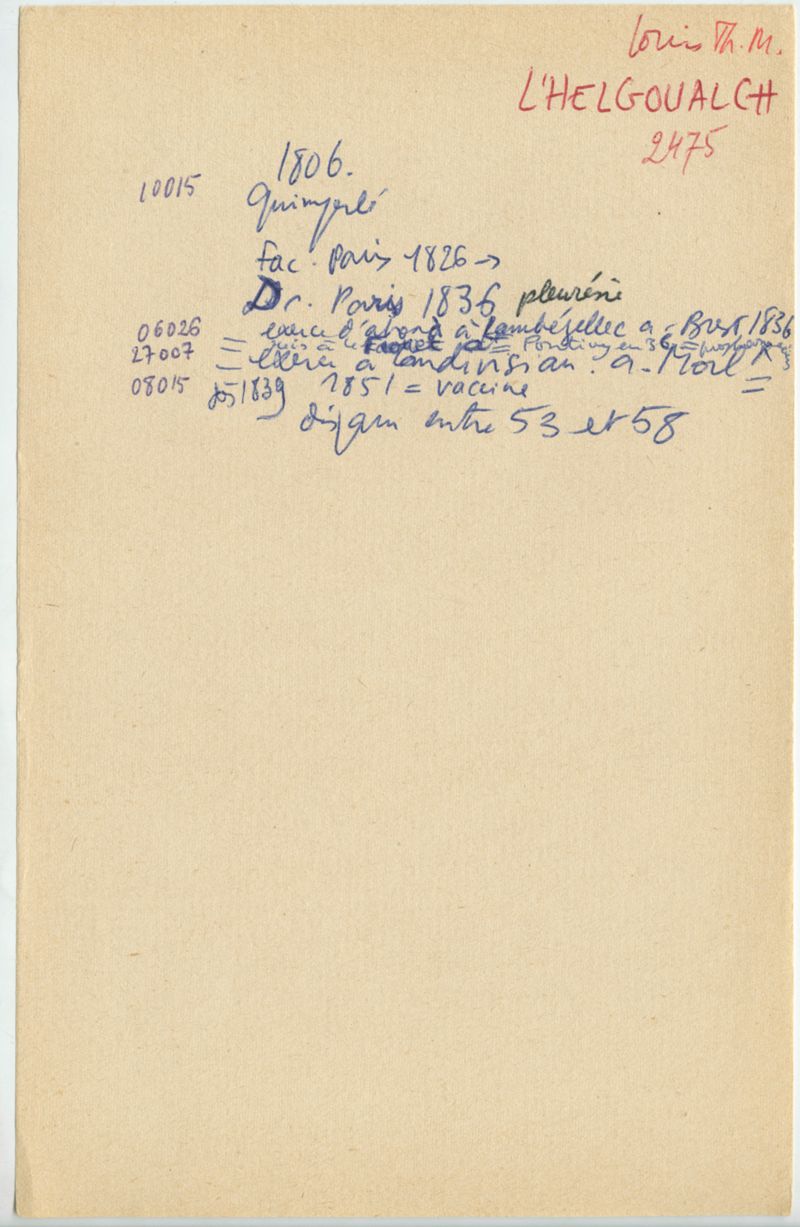 Louis Th. M.
L'HELGOUALCH
2475
1806.
10015
Quimperlé
Fac. Paris 1826 →
Dr. Paris 1836 pleurésie
06026 exerce d'abord à Lambézellec a - Brest 1836
27007 puis à le Faouet a = Pontivy en 36
= exerce à Landivisiau. a - Morl
08015 dès 1839 1851 = vaccine =
disparu entre 53 et 58